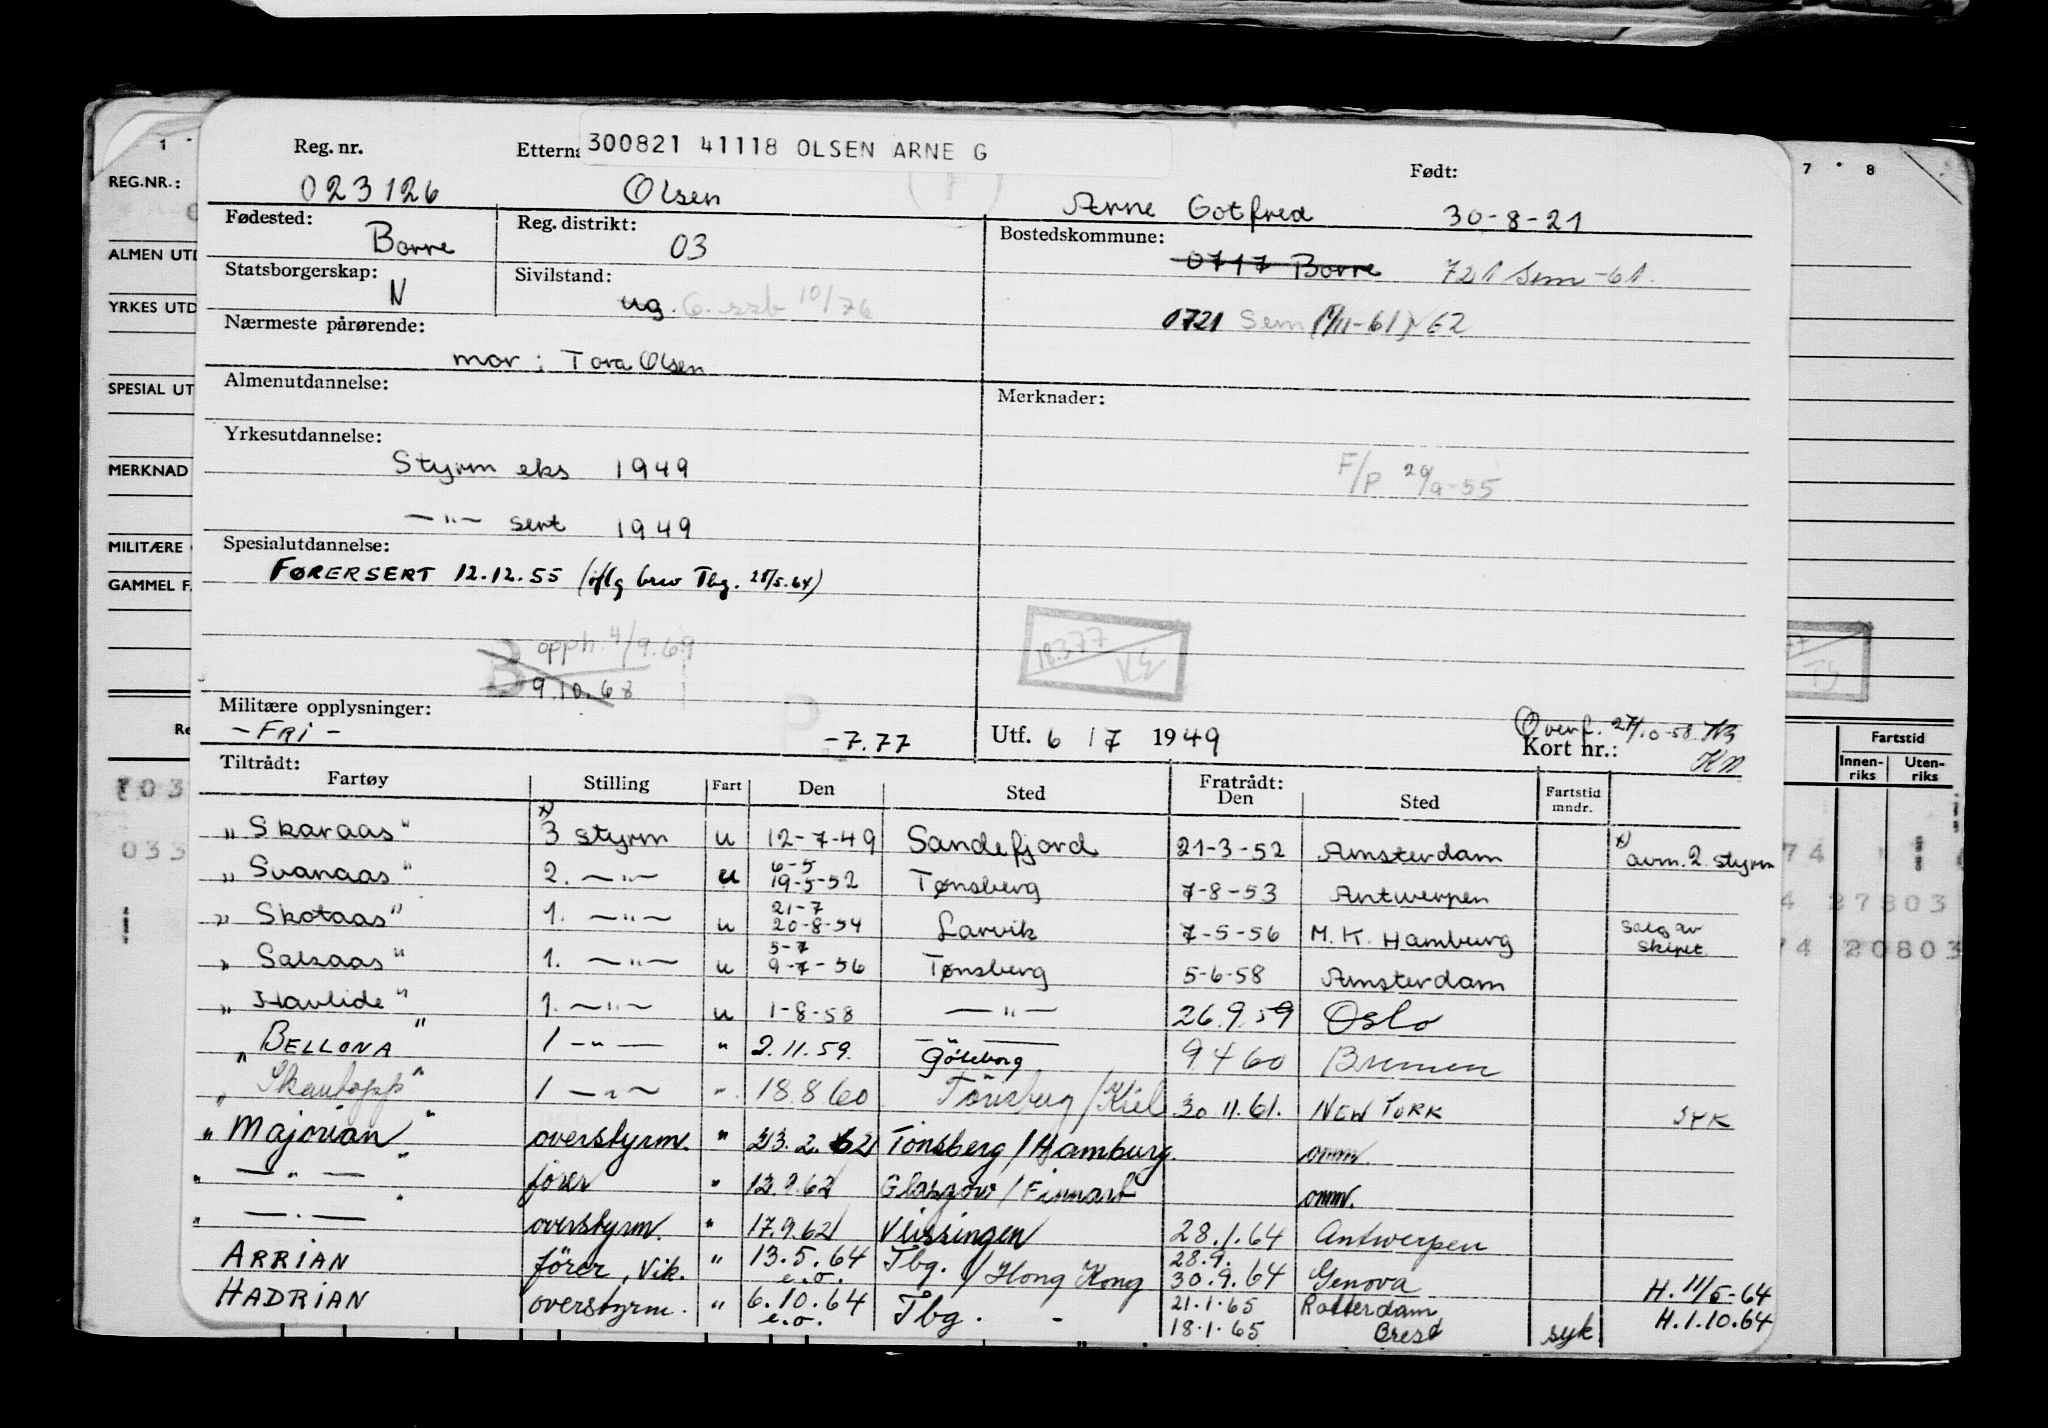 Reg. nr. Ettern 300821 41118 OLSEN ARNE G Født:
023126 Olsen Arne Gotfred 30-8-21
Fødested: Borre Reg. distrikt: 03 Bostedskommune: 0717 Borre 721 Sem -61.
Statsborgerskap: N Sivilstand: ug. G. 10/76
0721 Sem
Nærmeste pårørende:
mor: Tora Olsen
Almenutdannelse: Merknader:
Yrkesutdannelse:
Styrm eks 1949 F/P
—"— sert 1949
Spesialutdannelse:
FØRERSERT 12.12.55 (iflg brev Tbg. 25/5.64)
B opph. 4/9.69
9.10.68
18.377
Militære opplysninger:
- FRI - P. -7.77 Utf. 6/7 1949 Overf. Kort nr.:
Tiltrådt: Fratrådt:
Fartøy Stilling Fart Den Sted Den Sted Fartstid mndr.
"Skaraas" x) 3 styrm u 12-7-49 Sandefjord 21-3-52 Amsterdam x) avm. 2. styrm
"Svanaas" 2. —"— u 6-5 19-5-52 Tønsberg 7-8-53 Antwerpen
"Skotaas" 1. —"— u 21-7 20-8-54 Larvik 7-5-56 M.K. Hamburg Salg av skipet
"Salsaas" 1. —"— u 5-7 9-7-56 Tønsberg 5-6-58 Amsterdam
"Havlide" 1. —"— u 1-8-58 —"— 26.9.59 Oslo
"BELLONA" 1 —"— " 2.11.59. Göteborg 9 4 60 Bremen
"Skautopp" 1 —"— " 18.8 60 Tönsberg/Kiel 30.11.61. NEW YORK SYK
"Majorian" overstyrm. " 23.2.62 Tönsberg/Hamburg. omm.
" —"— " fører " 12.9.62 Glasgow/Finnart omm.
" —"— " overstyrm. " 17.9.62 Vlissingen 28.1.64 Antwerpen
ARRIAN förer, vik. " 13.5.64 e.o. Tbg./Hong Kong 28.9. 30.9.64 Genova H. 11/5-64
HADRIAN overstyrm. " 6.10.64 e.o. Tbg. - 21.1.65 Rotterdam H.1.10.64
18.1.65 Brest syk
1 7 8
REG.NR.:
ALMEN UTD
YRKES UTD
SPESIAL UT
MERKNAD
MILITÆRE
GAMMEL F
Re
Fartstid
Innen-riks Uten-riks
703
033
74
4 27803
74 20803